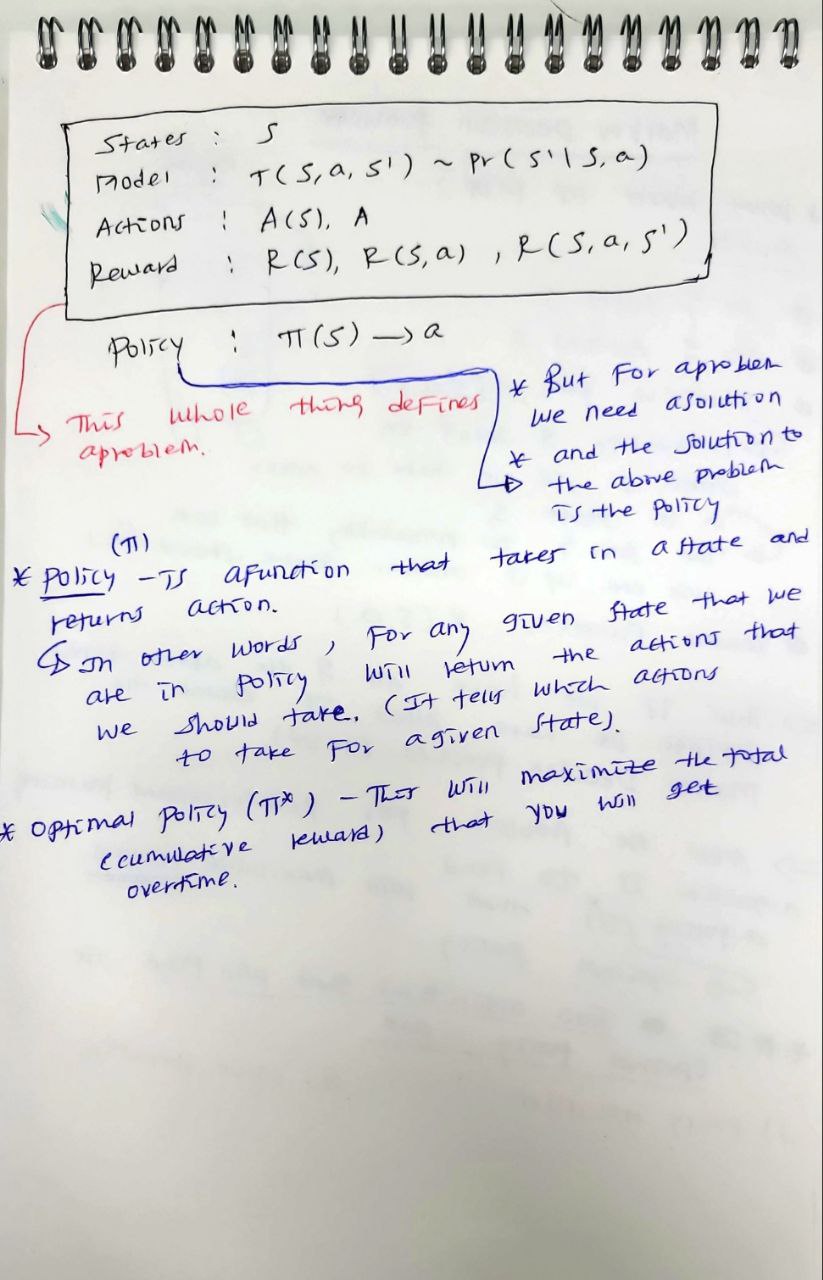 States : S
Model : T(S, a, S') ~ Pr(S' | S, a)
Actions : A(S), A
Reward : R(S), R(S, a), R(S, a, S')
Policy : π(S) → a
This whole thing defines
aproblem.
* But For aproblem
we need asolution
* and the solution to
the above problem
is the policy
(π)
* Policy - is afunction that takes in a state and
returns action.
In other words, For any given state that we
are in policy will return the actions that
we should take. (It tells which actions
to take For agiven state).
* Optimal policy (π*) - This will maximize the total
(cumulative reward) that you will get
overtime.